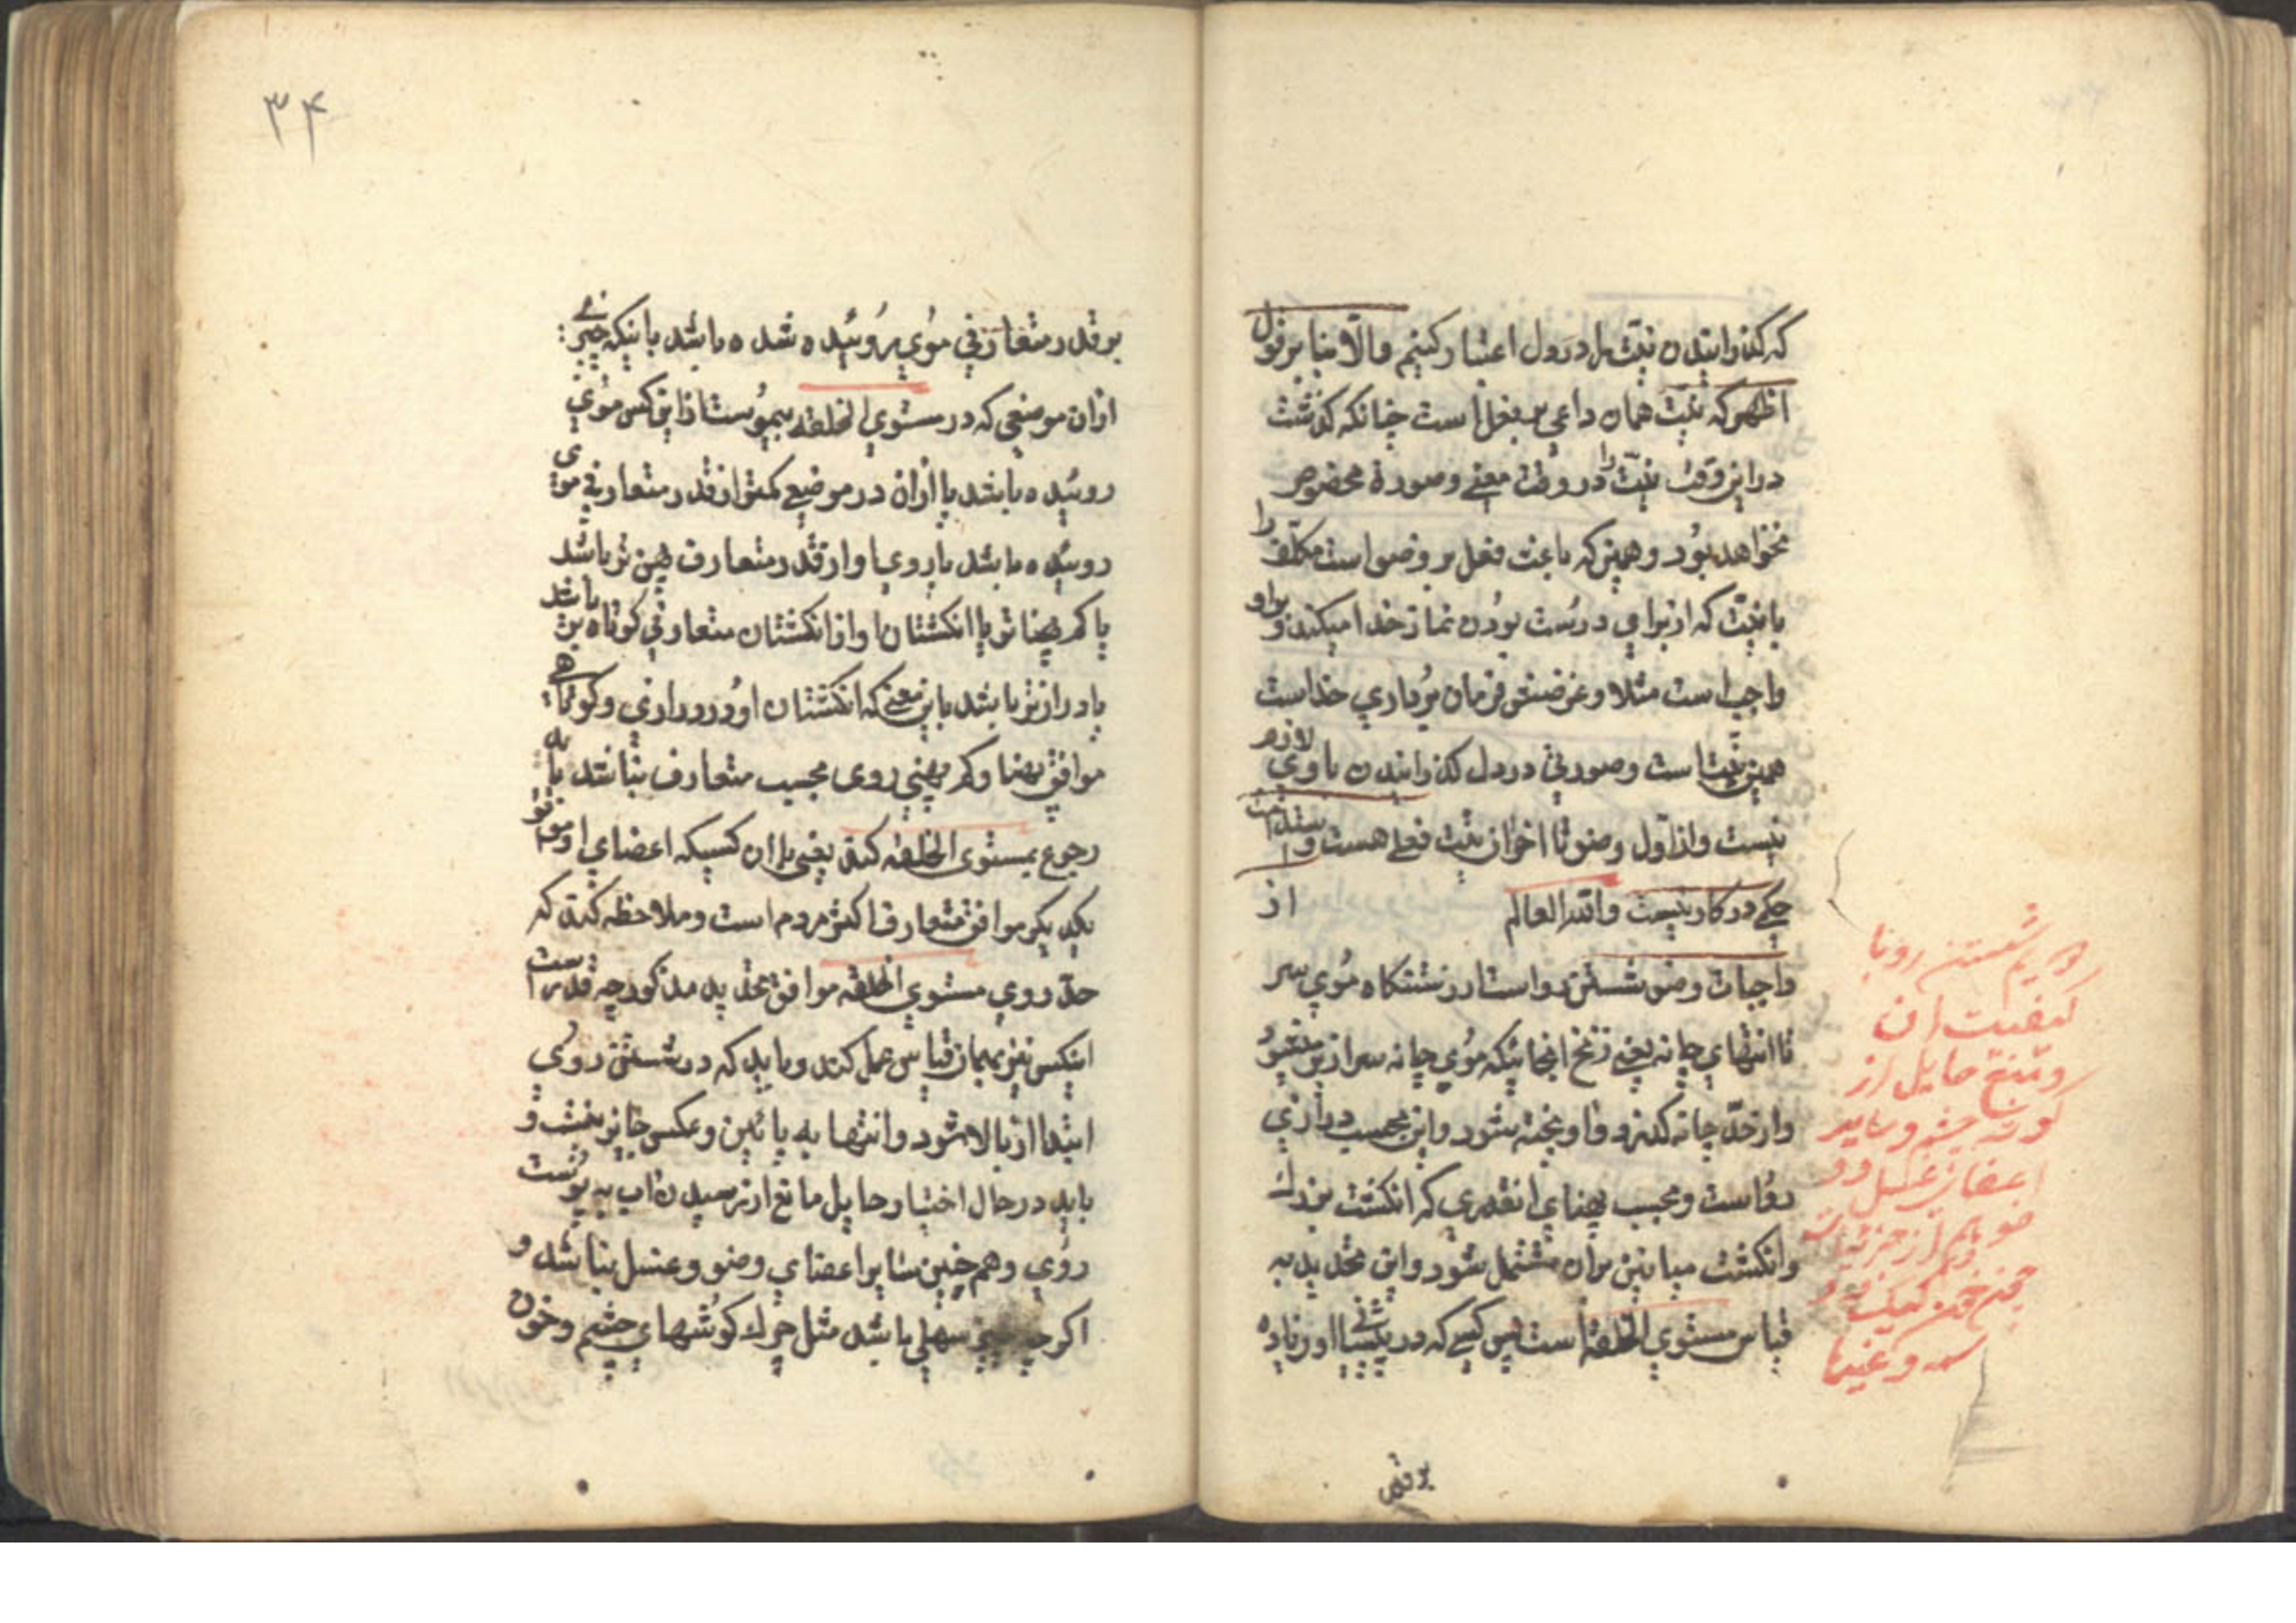 که گذرانیدن نیّت بل در دل اعتبار کنیم والّا بنا بر قول
اظهر که نیّت همان داعی بر فعل است چنانکه گذشت
در این وقت نیّت را در وقت معنی وصورة مخصوص
نخواهد بود و همین که باعث فعل بر وضو است مکلّف را
با نیّت که از برای درست بودن نماز خدا میکند و بر او
واجب است مثلا وغرضش فرمان برداری خداست
همین نیّت است وصورتی در دل گذرانیدن باوی لازم
نیست واز اوّل وضو تا اخر از نیّت فعلی هست و استدامت
حکمی در کار نیست والله العالم از
واجبات وضو شستن رواست از رستنگاه موی سر
تا انتهای چانه یعنی زنخ انجا ئیکه موی چانه سرازیر میشود
واز حدّ چانه گذرد وفاویخته شود واین بحسب درازی
رواست وبحسب پهنای انقدری که انگشت بزرك
وانگشت میانین بران مشتمل شود واین تحدید به
قیاس مستوی الخلقة است پس کسی که در پیشانی او زیاده
بر قدر
لازم شستن رو با
کیفیت ان
ومنع حایل از
گوشه چشم وسایر
اعضای غسل و و
ضو هم از جزئیات
چون خون کیک
وغیرها
۳۴
بر قدر متعارفی موی بروئیده شده باشد یا نیکه چیزی
ازان موضعی که در مستوی الخلقه بیموست از این کس موی
روئیده باشد یا ازان در موضعی کمتر از قدر متعارفی موی
روئیده باشد یا روی او از قدر متعارف پهن تر باشد
یا کم پهنا تر یا انگشتان او از انگشتان متعارفی کوتاه تر باشد
یا درازتر باشد باین معنی که انگشتان او در درازی وکوتاهی
موافق پهنا وکم پهنی روی بحسب متعارف نباشد باید
رجوع بمستوی الخلقه کند یعنی با ان کسیکه اعضای او موافق
یکدیگر موافق متعارف اکثر مردم است وملاحظه کند که
حدّ روی مستوی الخلقه موافق تحدید مذکور چه قدر است
اینکس نیز بهمان قیاس عمل کند وباید که در شستن روی
ابتدا از بالا شود وانتها به پائین وعکس جایز نیست و
باید در حال اختیار حایل مانع از رسیدن اب به پوست
روی وهم چنین سایر اعضای وضو وغسل نباشد و
اگر چه چیز سهلی باشد مثل چرك گوشهای چشم وخون